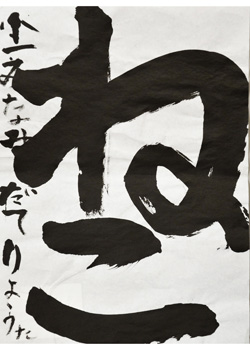 ねこ
小一 みなみ だてりょうた